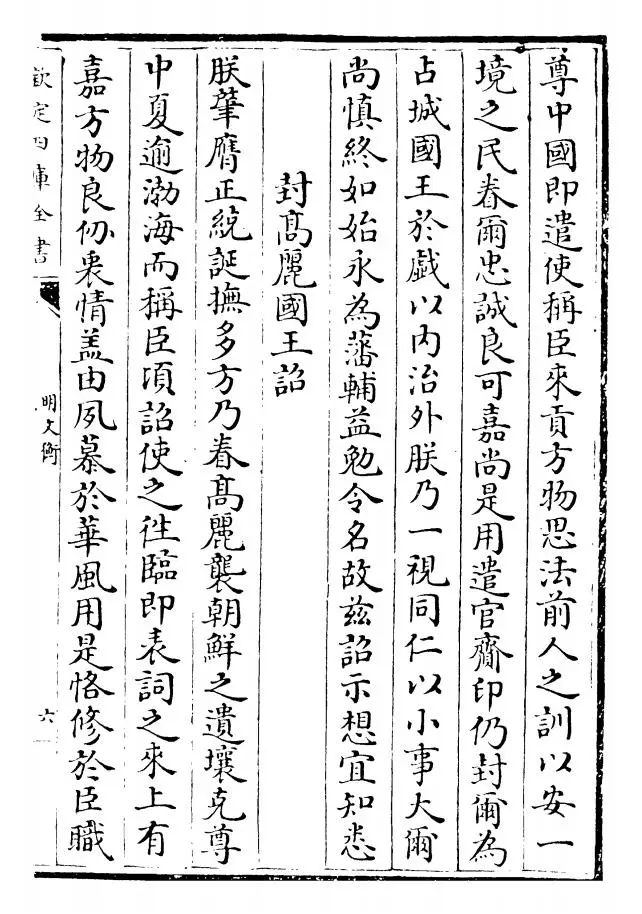 尊中國即遣使稱臣來貢方物思法前人之訓以安一
境之民眷爾忠誠良可嘉尚是用遣官齎印仍封爾為
占城國王於戲以內治外朕乃一視同仁以小事大爾
尚慎終如始永為藩輔益勉令名故兹詔示想宜知悉
封髙麗國王詔
朕肇膺正統誕撫多方乃眷髙麗襲朝鮮之遺壤克尊
中夏逾渤海而稱臣頃詔使之徃臨即表詞之來上有
嘉方物良仞衷情盖由夙慕於華風用是恪修於臣職
欽定四庫全書
明文衡
六